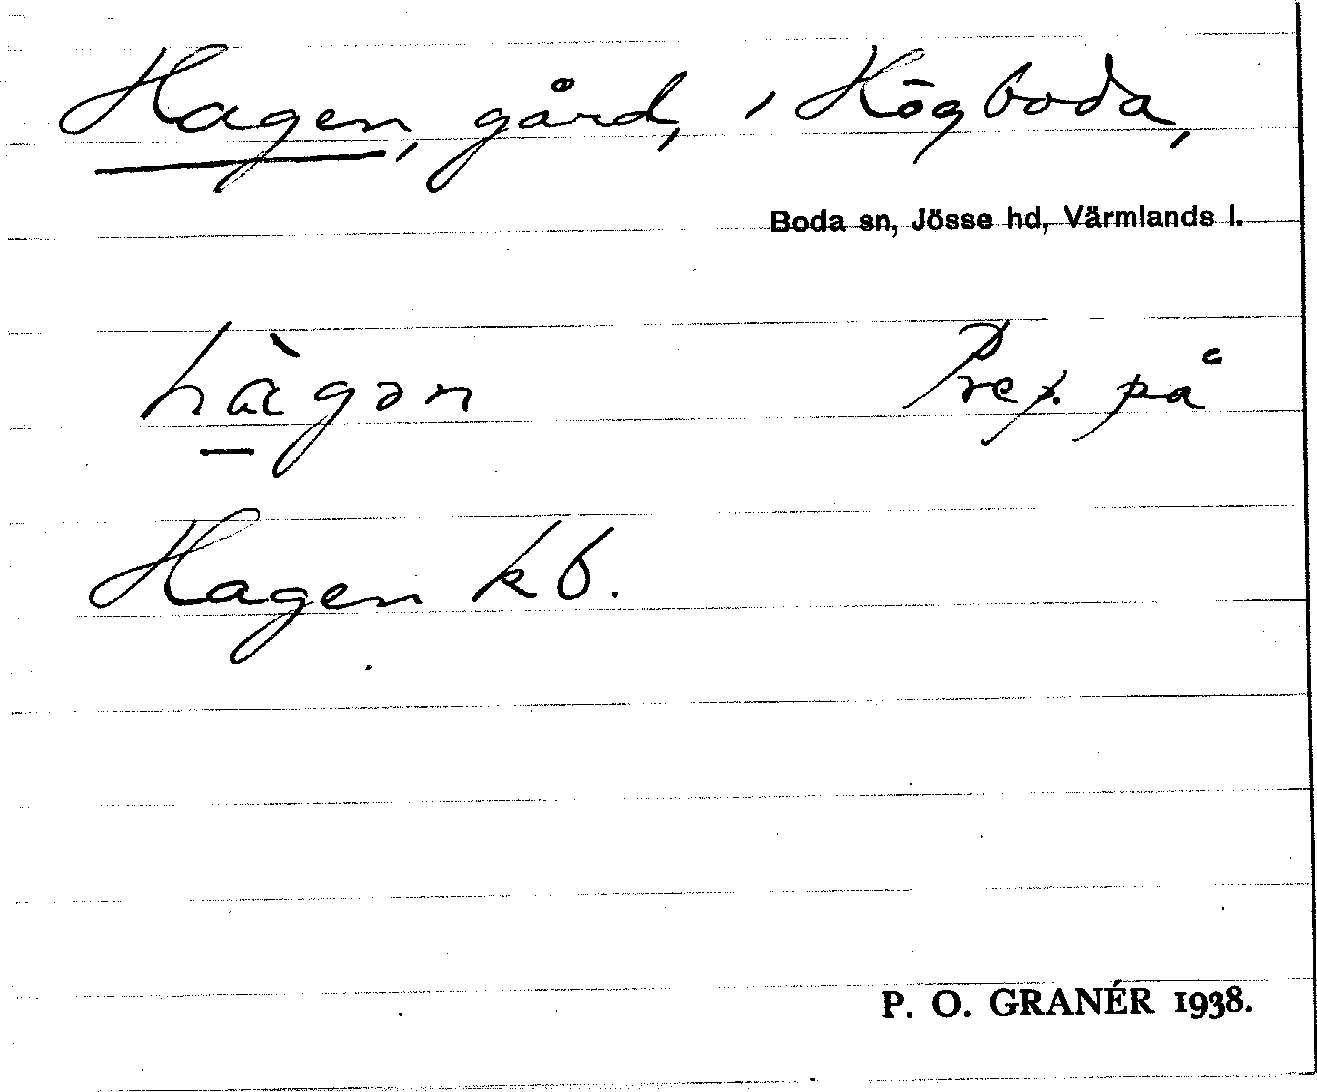 Hagen, gård, i Högboda,
Boda sn, Jösse hd, Värmlands l.
hàgən Prep. på
Hagen kb.
P. O. GRANÉR 1938.